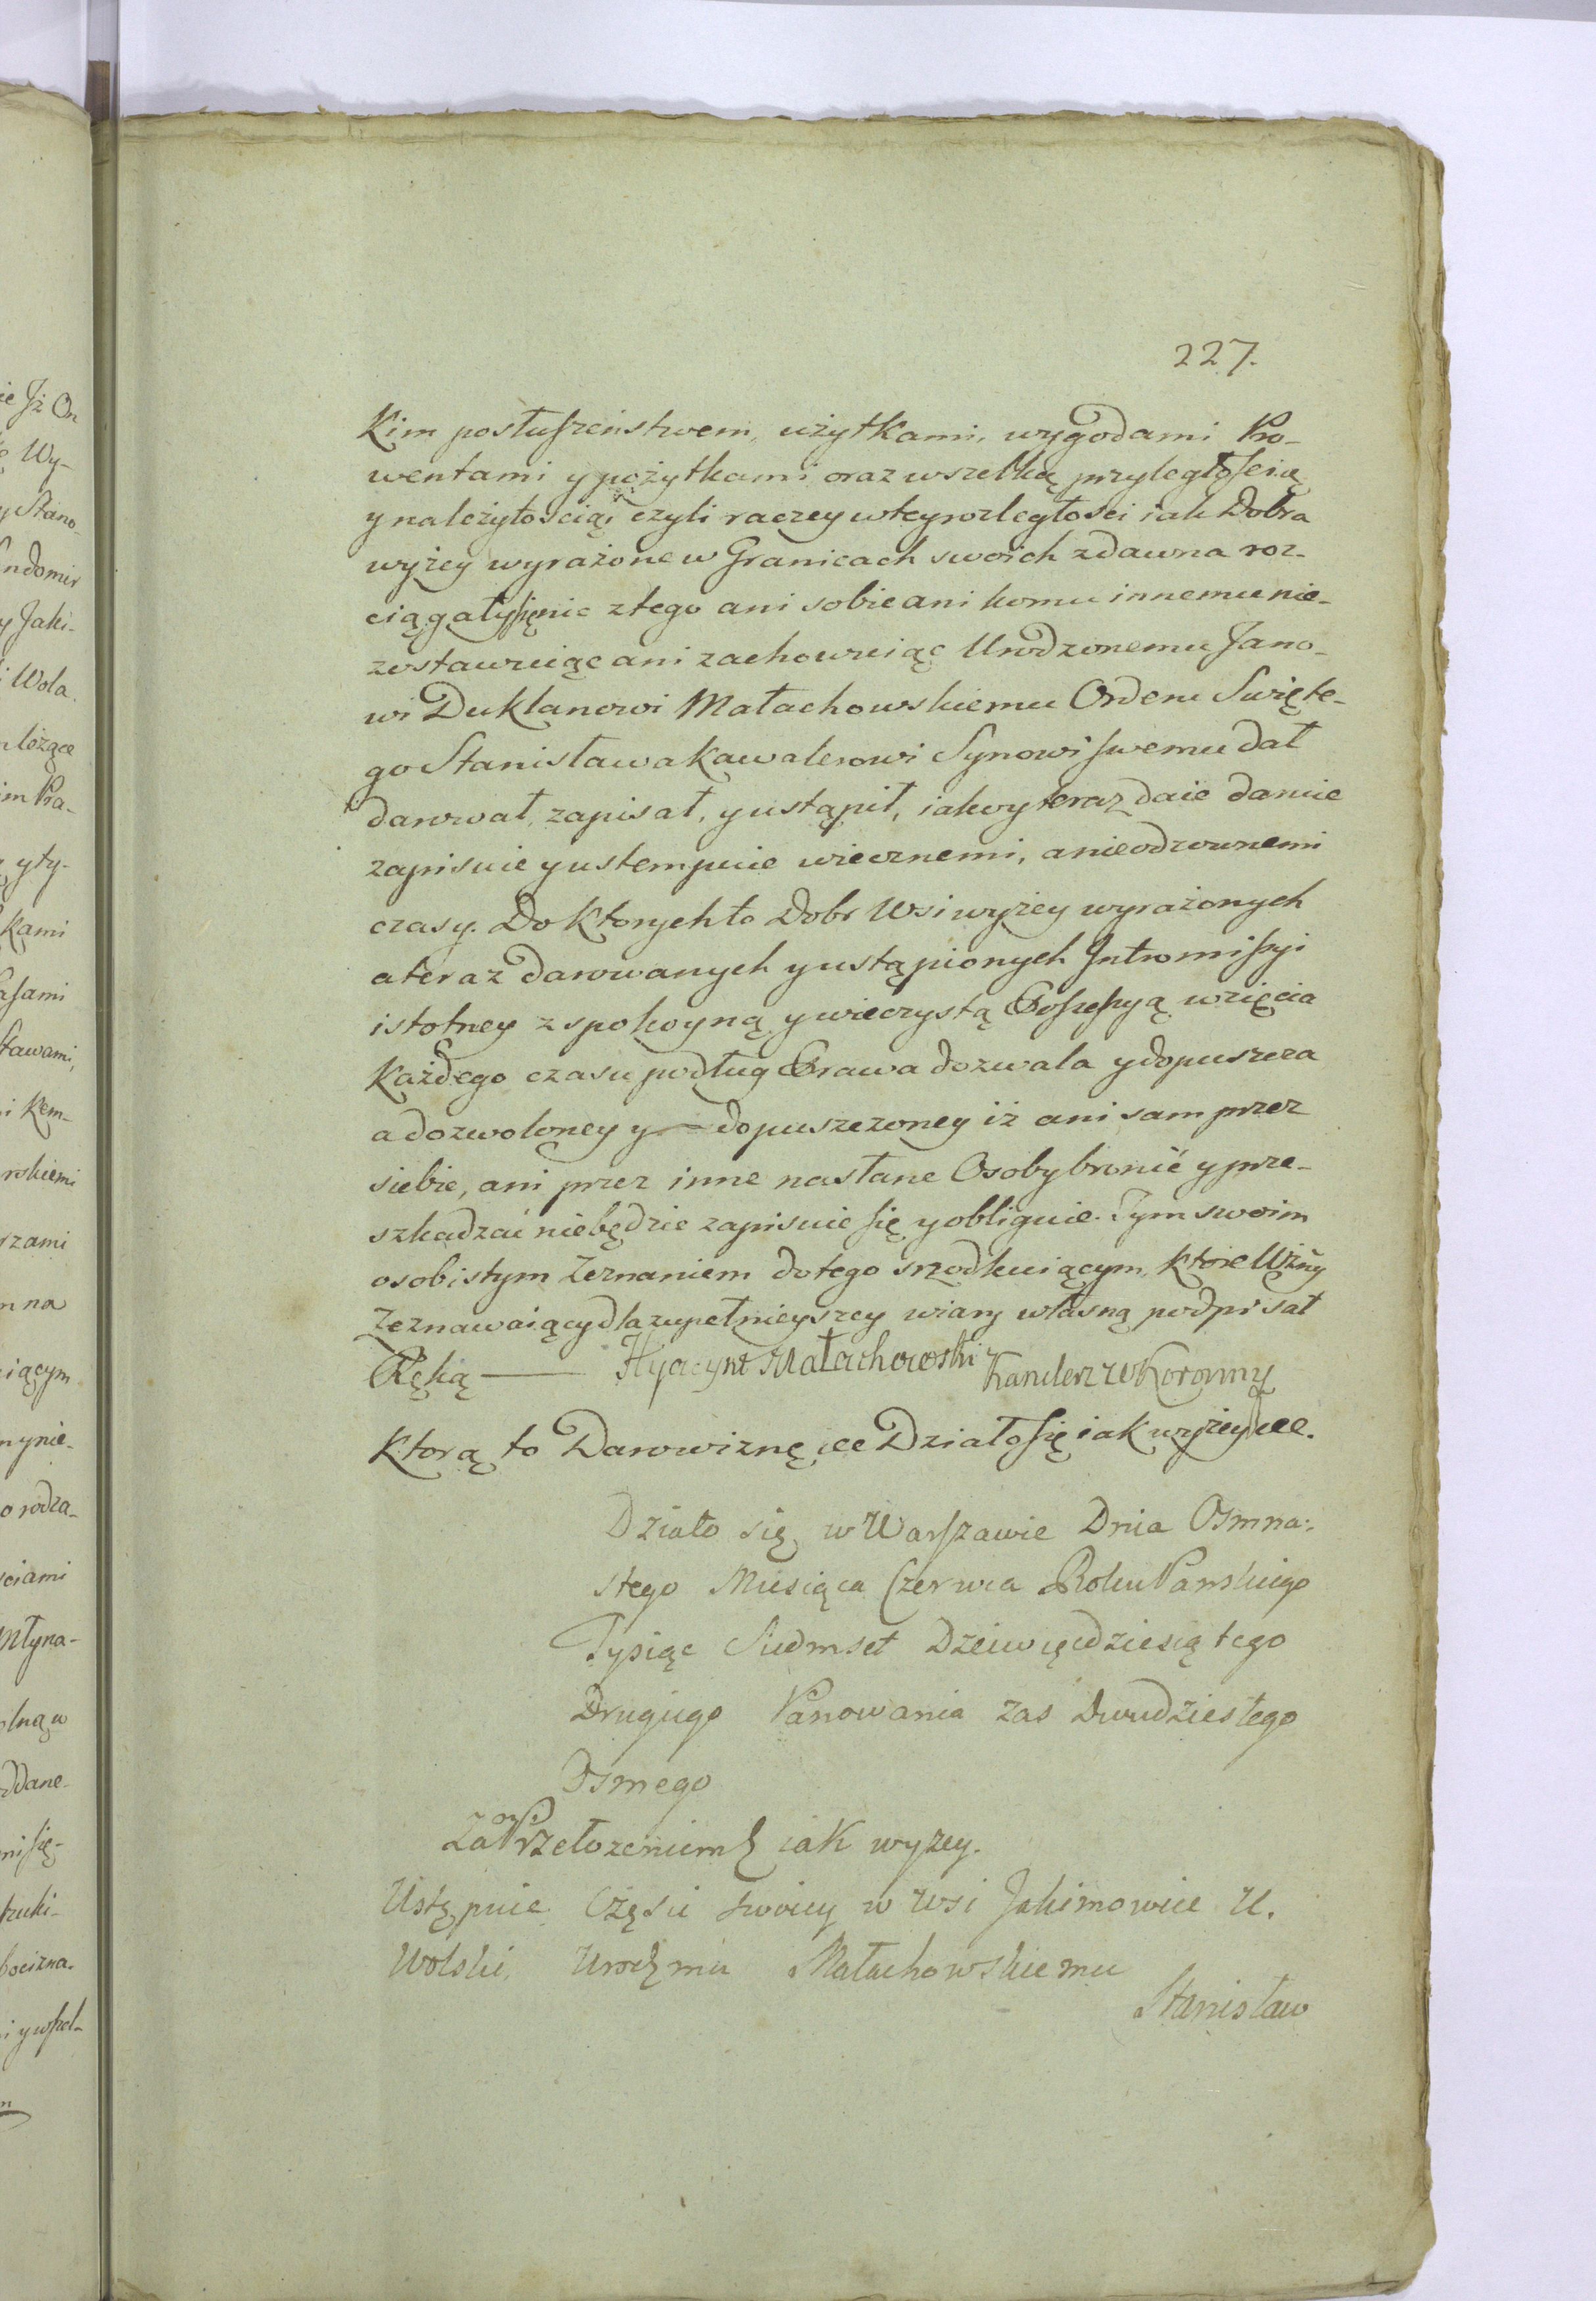 227.
Kim posłuszeństwem, użytkami, wygodami Pro-
wentami y pożytkami oraz wszelką przyległością
y należytością, czyli raczey w tey rozległości iak Dobra
wyżey wyrażone w Granicach swoich zdawna roz-
ciągały się nic z tego ani sobie ani komu innemu nie-
zostawuiąc ani zachowuiąc Urodzonemu Jano-
wi Duklanowi Małachowskiemu Orderu Święte-
go Stanisława Kawalerowi Synowi swemu dał
darował, zapisał, y ustąpił, iakoż y teraz daie daruie
zapisuie y ustempuie wiecznemi, a nieodzownemi
czasy. Do Ktorych to Dobr Wsi wyżey wyrażonych
a teraz darowanych y ustąpionych Intromissyi
istotney z spokoyną y wieczystą Possessyą wzięcia
Każdego czasu podług Prawa dozwala y dopuszcza
a dozwoloney y — dopuszczoney iż ani sam przez
siebie, ani przez inne nasłane Osoby bronić y prze-
szkadzać niebędzie zapisuie się y obliguie. Tym swoim
osobistym Zeznaniem do tego srzodkuiącym, Ktore Wżny
Zeznawaiący dla zupełnieyszey wiary własną podpisał
Ręką — Hyacynt Małachowski Kanclerz W Koronny
Ktorą to Darowiznę &c Działo się iak wyżey &c.
Działo się w Warszawie Dnia Osmna-
stego Miesiąca Czerwca Roku Pańskiego
Tysiąc Siedmset Dziewięćdziesiątego
Drugiego Panowania zaś Dwudziestego
Osmego
Za Przełożeniem iak wyżey.
Ustępuie Części swoiey w Wsi Jakimowice U.
Wolski, Urodzmu Małachowskiemu
Stanisław